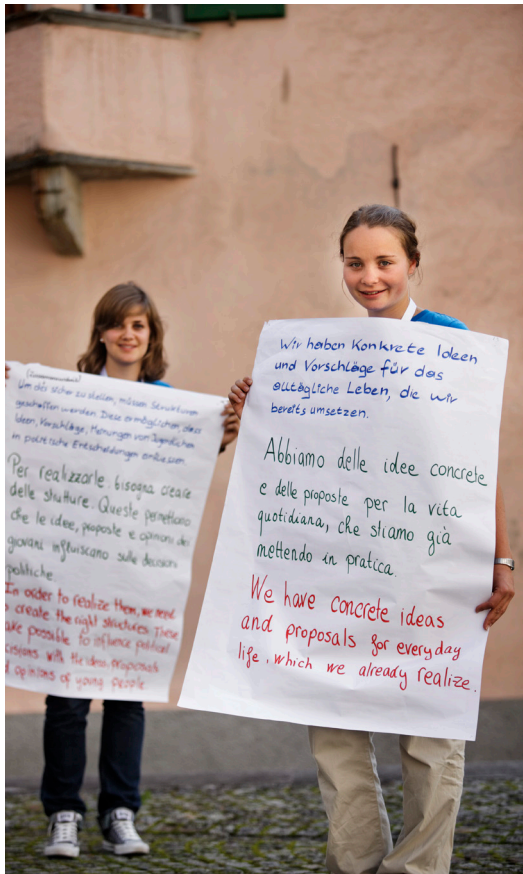 Um dies sicher zu stellen, müssen Strukturen
geschaffen werden. Diese ermöglichen, dass
Ideen, Vorschläge, Meinungen von Jugendlichen
in politische Entscheidungen einfliessen.
Per realizzarle, bisogna creare
delle strutture. Queste permettono
che le idee, proposte e opinioni dei
giovani influiscano sulle decisioni
politiche.
In order to realize them, we need
create the right structures. These
possible to influence political
with the ideas, proposals
opinions of young people
Wir haben Konkrete Ideen
und Vorschläge für das
alltägliche Leben, die wir
bereits umsetzen.
Abbiamo delle idee concrete
e delle proposte per la vita
quotidiana, che stiamo già
mettendo in pratica.
We have concrete ideas
and proposals for everyday
life, which we already realize.